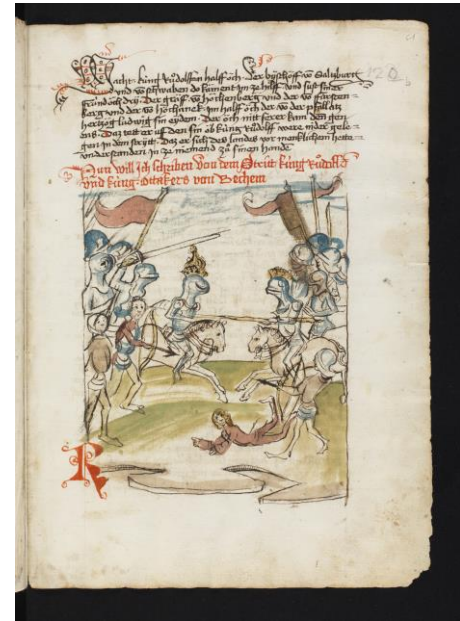 Macht. küng Rüdolffen halff och. Der byschoff vo Saltzburg
und vo schwaben do kament jm ze hilff und sust siner
fründ och drÿ. Der graf vo hochenberg und der vo fürsten
berg und der vo hochanek jm halff och der vo der pfallentz
hertzog ludwig sin eydem. Der och mit
dens. Daz tett er uff den sin ob küng Rüdolff were nider gele
gen jn dem stritt. Daz er sich des landes vor manklichem hette
understanden jn ze niemend zü sinen hande
Nun will Ich schriben von dem Stritt küng Rüdolfs
und küng Ottakers von Bechem
R
120